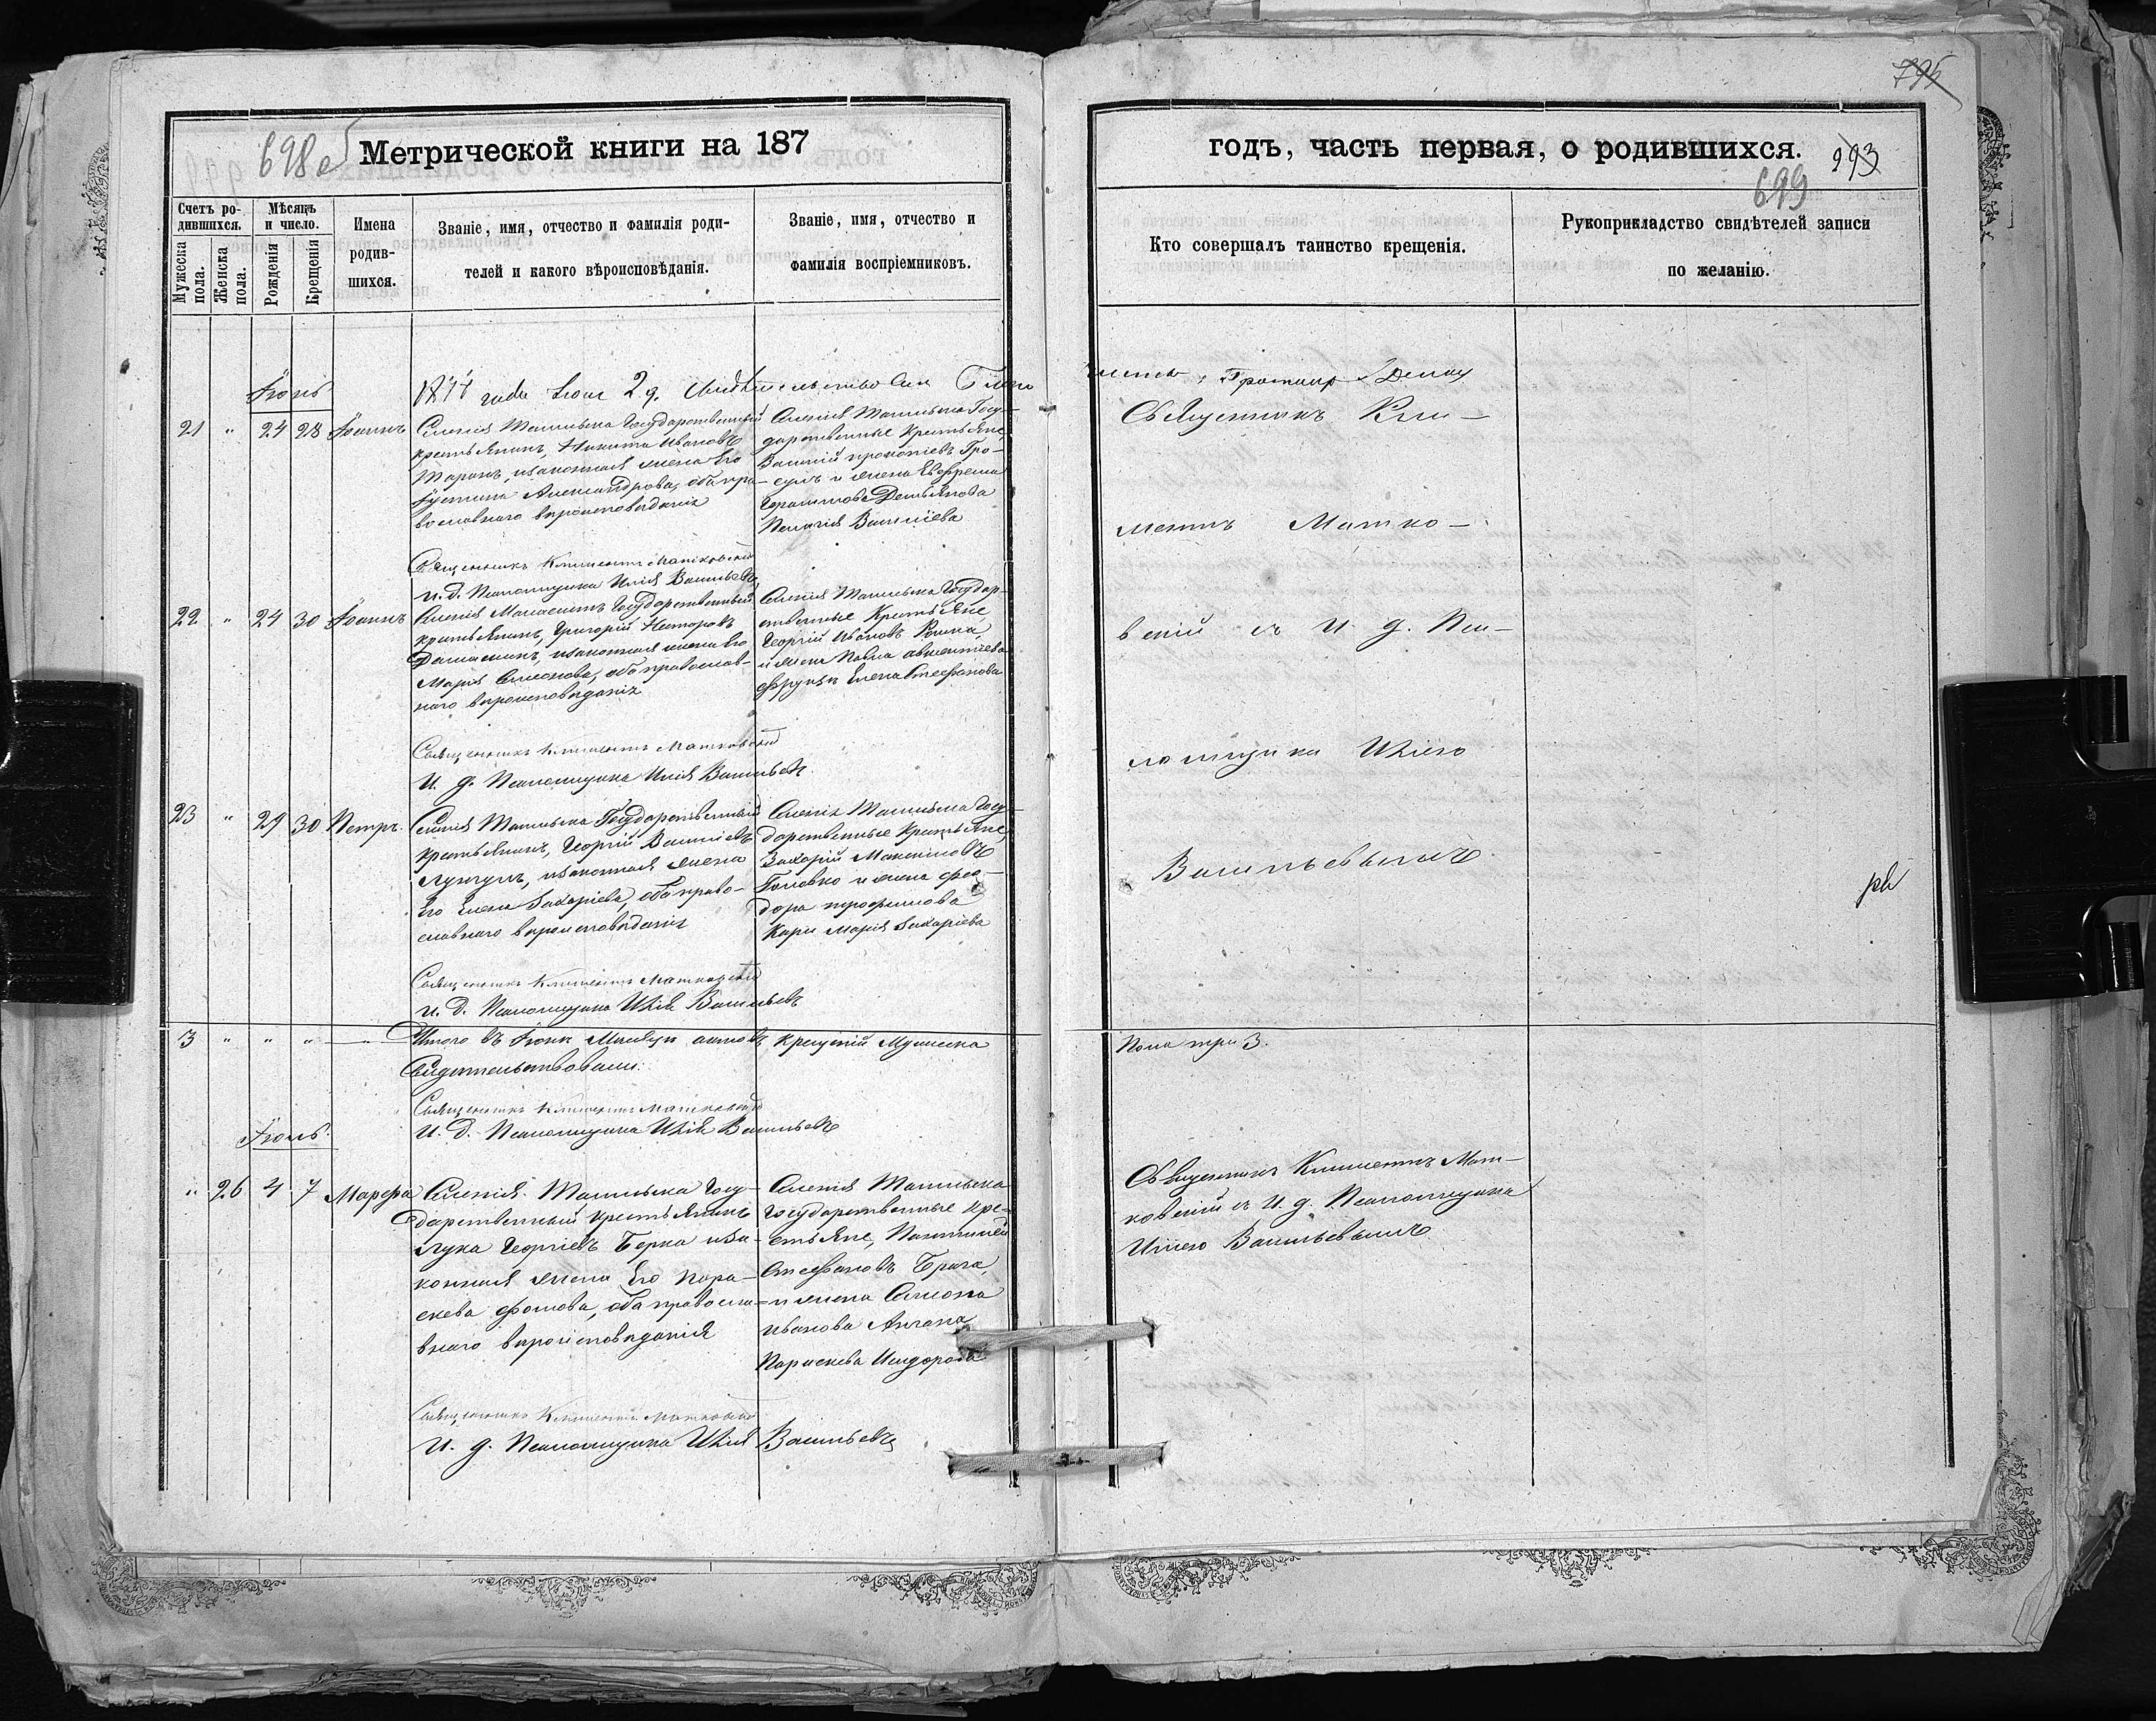 795
698 об
Метрической книги на 187
годъ, часть первая, о родившихся.
293
699
Счетъ ро-
дившихся.
Мужеска
пола.
Женска
пола.
Мѣсяцъ
и число.
Рожденія
Крещенія
Имена
родив-
шихся.
Званіе, имя, отчество и фамилія роди-
телей и какого вѣроисповѣданія.
Званіе, имя, отчество и
фамилія воспріемниковъ.
Кто совершалъ таинство крещенія.
Рукоприкладство свидѣтелей записи
по желанію.
Іюнь
Протоіер
21 " 24 28 Іоаннъ
Селенія Ташлыка Государственный
крестьянинъ, Никита Ивановъ
Таранъ, изаконная жена Его
Іустина Александрова, оба пра-
вославнаго вѣроисповѣданія
Селенія Ташлыка Госу-
дарственные крестьяне,
Василій Прокопіевъ Гро-
сулъ и жена Евфрема
Герасимова Демьянова
Пелагія Василіева
Священникъ Кли-
ментъ Матко-
вскій съ И. д. Пса-
ломщика Иліею
Васильевымъ
Священникъ Климентъ Матковскій
И. д. Псаломщика Илія Васильевъ
22 " 24 30 Іоаннъ
Селенія Малаештъ Государственный
крестьянинъ, Григорій Несторовъ
изаконная жена Его
Марія Симонова, оба православ-
наго вѣроисповѣданія
Селенія Ташлыка Государ-
ственные Крестьяне
Георгій Ивановъ
и жена Павла
Елена Стефанова
Священникъ Климентъ Матковскій
И. д. Псаломщика Илія Васильевъ
23 " 29 30 Петръ.
Селенія Ташлыка Государственный
крестьянинъ, Георгій Василіевъ
Лунгулъ, изаконная жена
Его Елена Захаріева, оба право-
славнаго вѣроисповѣданія
Селенія Ташлыка Госу-
дарственные крестьяне,
Захарій Максимовъ
Головко и жена Фео-
дора Трофимова
Кари Марія Захаріева
Священникъ Климентъ Матковскій
И. д. Псаломщика Илія Васильевъ
3 " " "
Итого въ Іюнѣ Мѣсяцѣ актовъ крещеній Мужеска
Пола три 3.
Свидѣтельствовали:
Священникъ Климентъ Матковскій
И. д. Псаломщика Илія Васильевъ
Іюль.
" 26 4 7 Марѳа
Селенія Ташлыка Госу-
дарственный крестьянинъ
Лука Георгіевъ Берка иза-
конная жена Его Пара-
скева Фомова, оба правосла-
внаго вѣроисповѣданія
Селенія Ташлыка
Государственные кре-
стьяне, Пантилей
Стефановъ Брага,
и жена Симона
Иванова
Параскева Исидорова
Священникъ Климентъ Мат-
ковскій съ И. д. Псаломщика
Иліею Васильевымъ
Священникъ Климентъ Матковскій
И. д. Псаломщика Илія Васильевъ